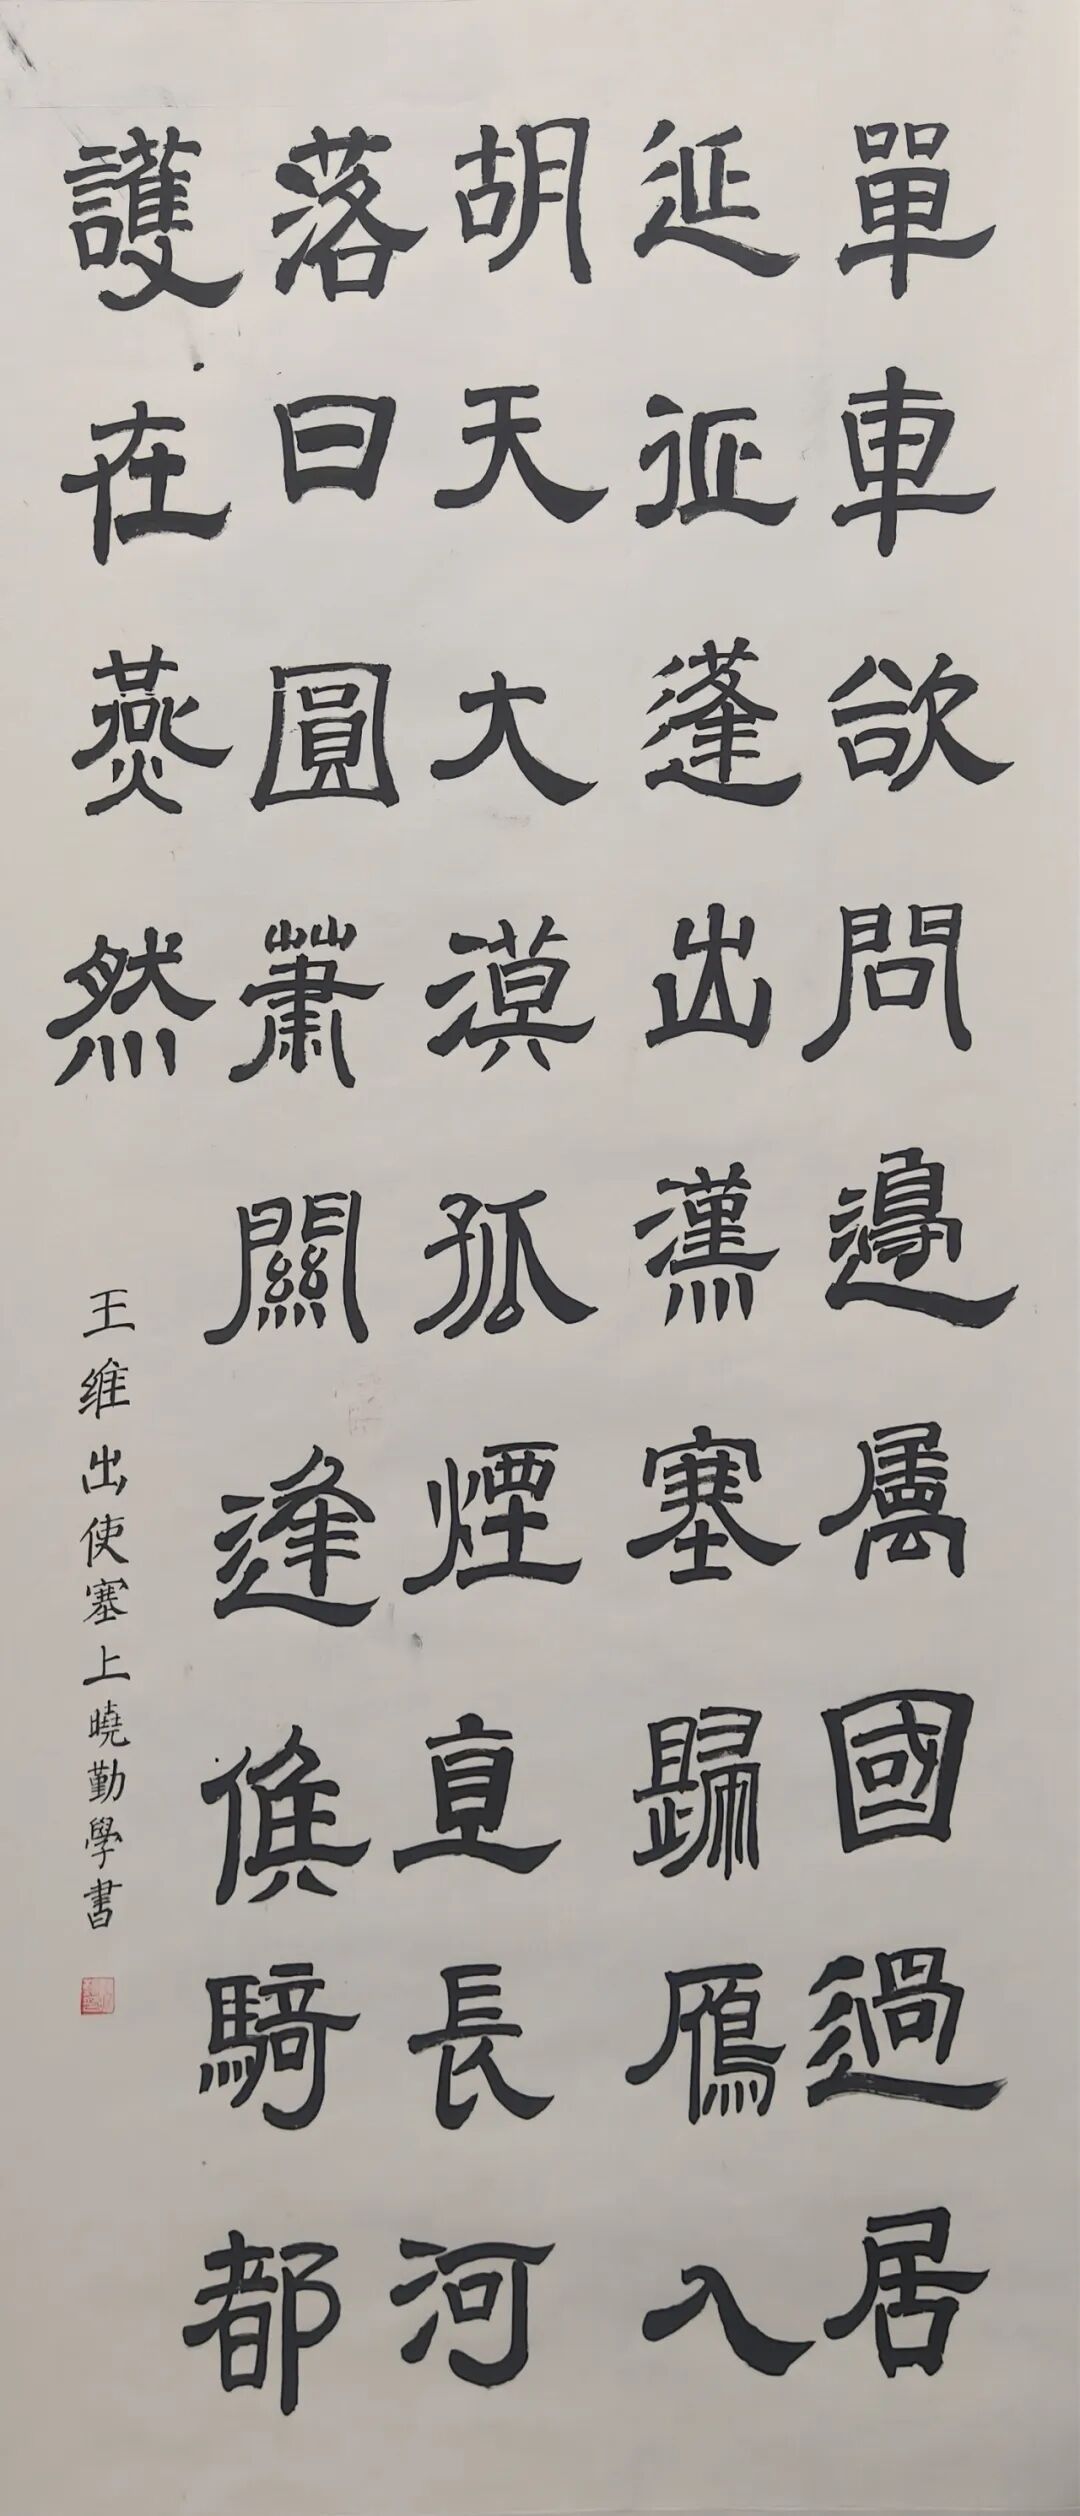 單車欲問邊屬國過居
延征蓬出漢塞歸雁入
胡天大漠孤煙直長河
落日圓蕭關逢候騎都
護在燕然
王維出使塞上曉勤學書